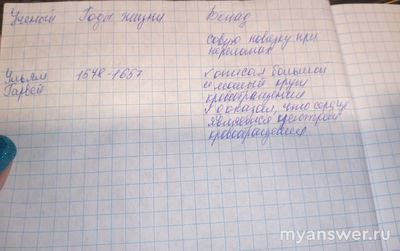 Ученый Годы жизни Вклад
совую повязку при
переломах
Уильям 1578-1657 описал большой
Гарвей и малый круг
кровообращения
доказал, что сердце
является центром
кровообращения.
myanswer.ru